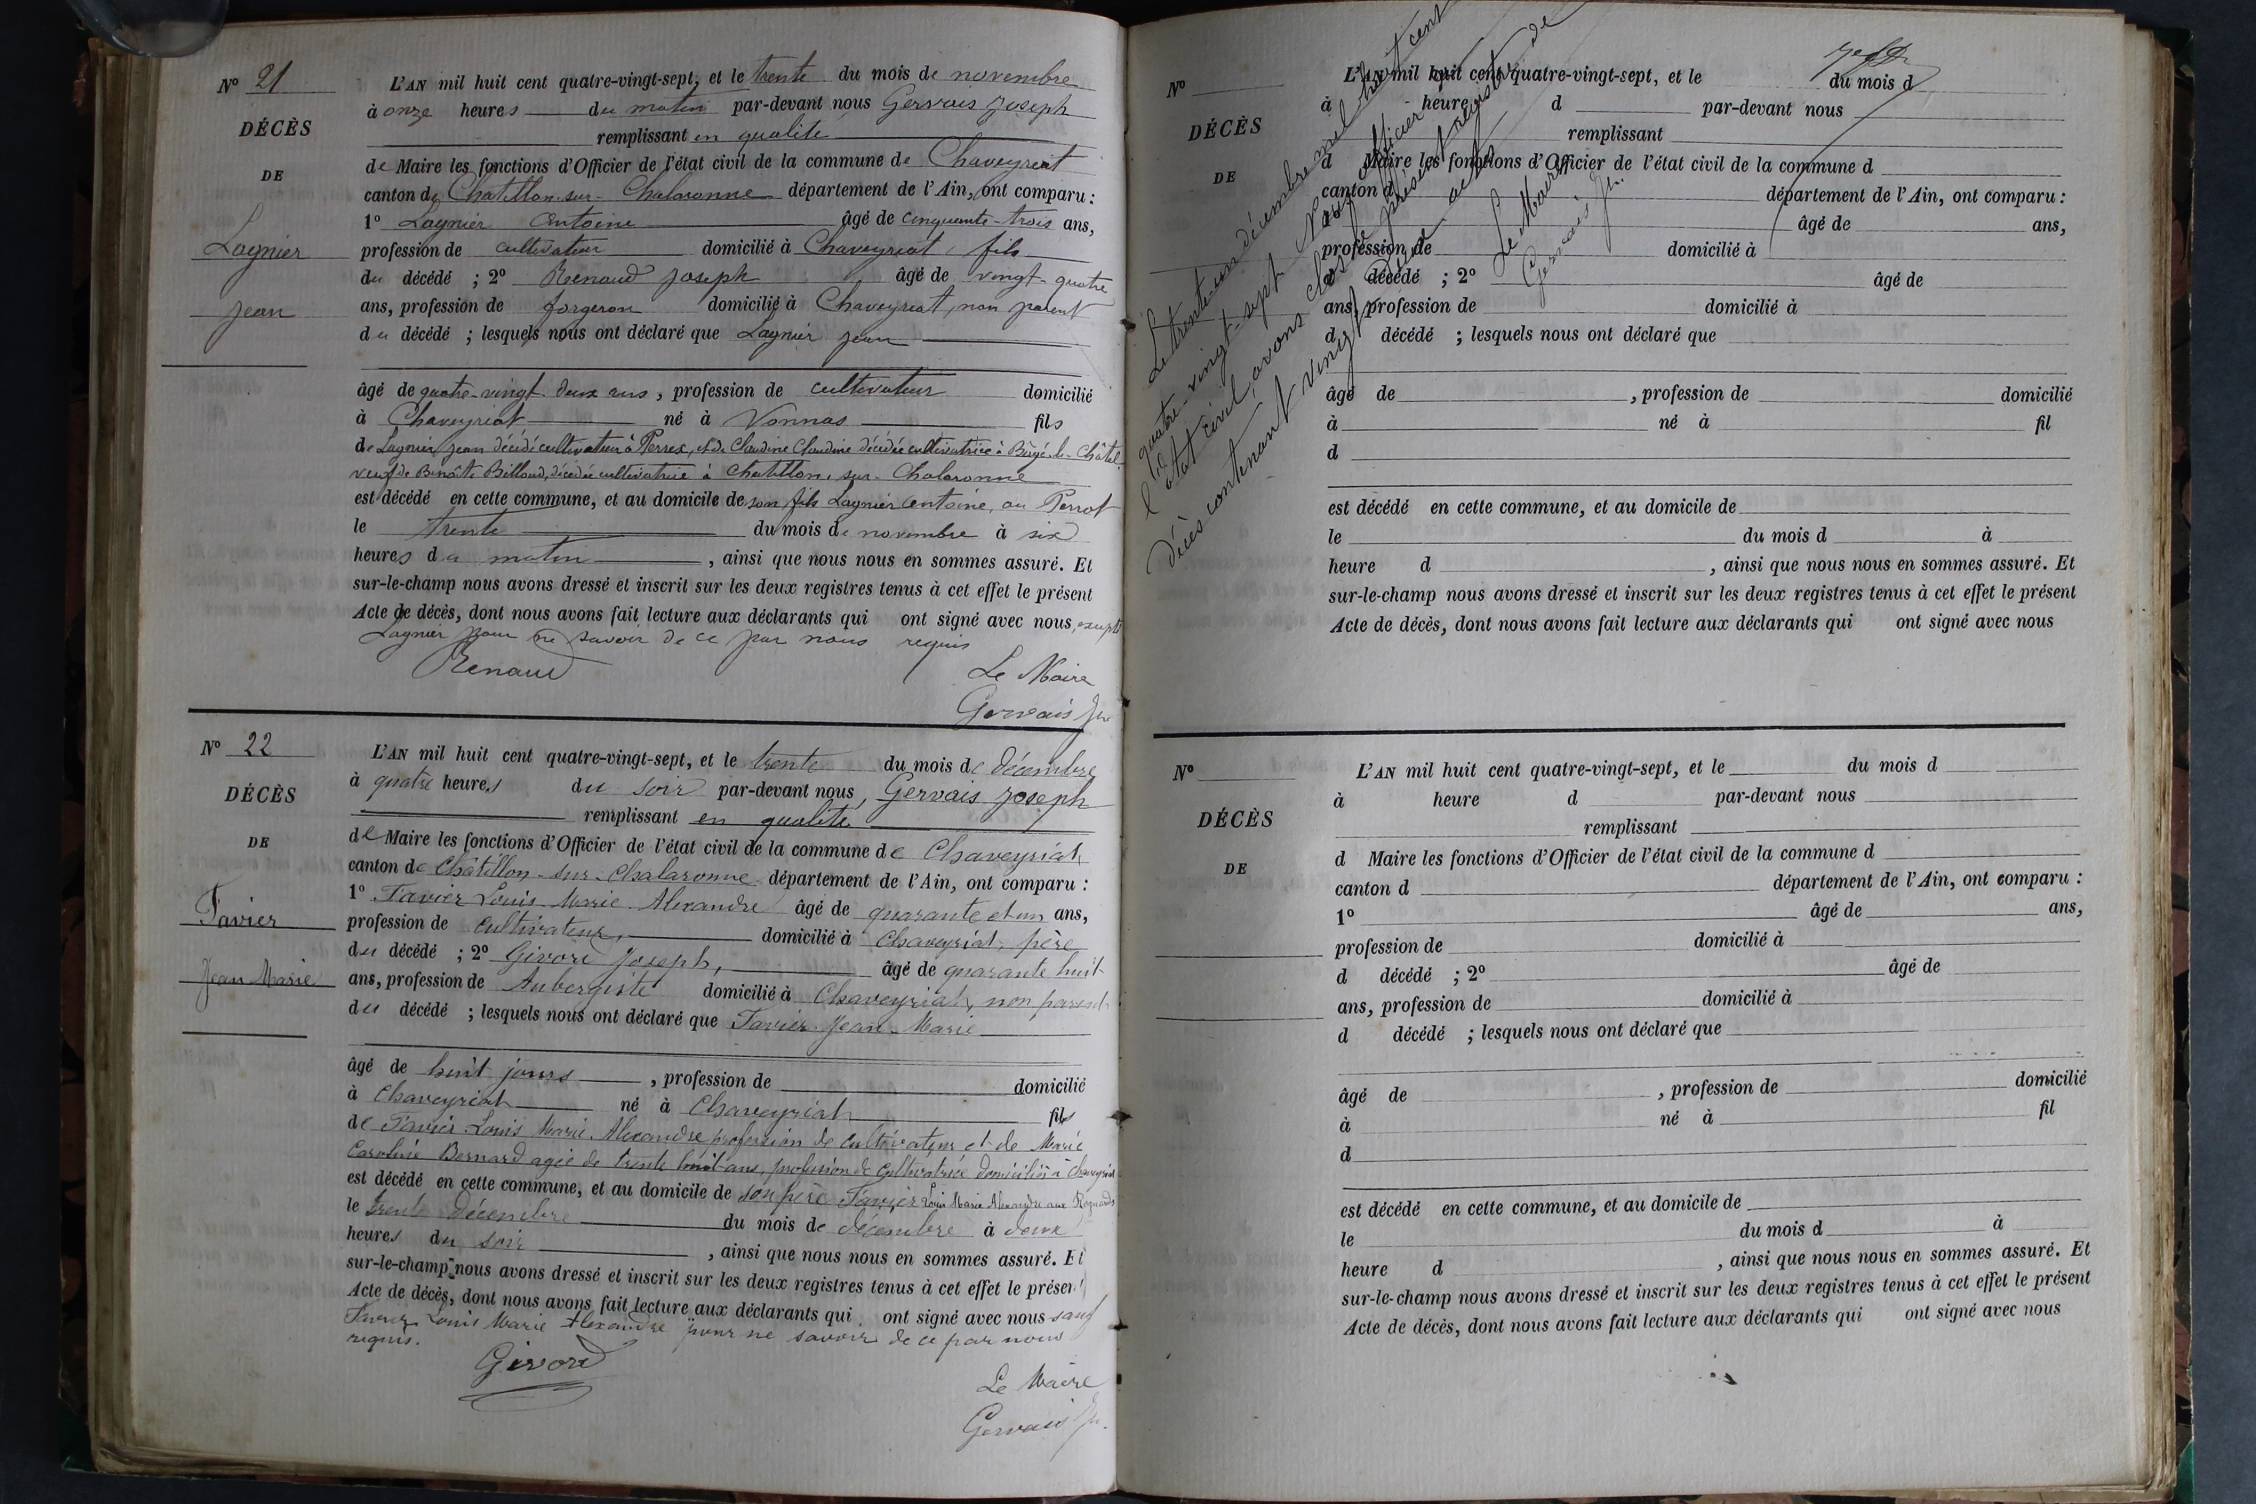 N° 21
DÉCÈS
DE
Lagnier
Jean
L'AN mil huit cent quatre-vingt-sept, et le trente du mois de novembre
à onze heures du matin par-devant nous Gervais Joseph
remplissant en qualité
de Maire les fonctions d'Officier de l'état civil de la commune de Chaveyriat
canton de Chatillon-sur-Chalaronne département de l'Ain, ont comparu :
1° Lagnier Antoine âgé de cinquante-trois ans,
profession de cultivateur domicilié à Chaveyriat, fils
du décédé ; 2° Renaud Joseph âgé de vingt-quatre
ans, profession de forgeron domicilié à Chaveyriat, non parent
du décédé ; lesquels nous ont déclaré que Lagnier Jean
âgé de quatre-vingt deux ans, profession de cultivateur domicilié
à Chaveyriat né à Vonnas fils
de Lagnier Jean décédé cultivateur à Perrex, et de Claudine Claudine décédée cultivatrice à Bâgé-le-Châtel
veuf de Benoîte Billoud, décédée cultivatrice à Chatillon-sur-Chalaronne
est décédé en cette commune, et au domicile de son fils Lagnier Antoine, au Perrot
le trente du mois de novembre à six
heures du matin, ainsi que nous nous en sommes assuré. Et
sur-le-champ nous avons dressé et inscrit sur les deux registres tenus à cet effet le présent
Acte de décès, dont nous avons fait lecture aux déclarants qui ont signé avec nous, excepté
Lagnier pour ne savoir de ce par nous requis
Renaud
Le Maire
Gervais Jh
N° 22
DÉCÈS
DE
Favier
Jean Marie
L'AN mil huit cent quatre-vingt-sept, et le trente du mois de décembre
à quatre heures du soir par-devant nous, Gervais Joseph
remplissant en qualité
de Maire les fonctions d'Officier de l'état civil de la commune de Chaveyriat
canton de Châtillon-sur-Chalaronne département de l'Ain, ont comparu :
1° Favier Louis Marie Alexandre âgé de quarante et un ans,
profession de cultivateur, domicilié à Chaveyriat, père
du décédé ; 2° Givord Joseph, âgé de quarante huit
ans, profession de Aubergiste domicilié à Chaveyriat, non parent
du décédé ; lesquels nous ont déclaré que Favier Jean-Marie
âgé de huit jours, profession de domicilié
à Chaveyriat né à Chaveyriat fils
de Favier Louis Marie Alexandre profession de cultivateur et de Marie
Caroline Bernard agée de trente huit ans, profession de cultivatrice domiciliés à Chaveyriat
est décédé en cette commune, et au domicile de son père Favier Louis Marie Alexandre aux
le trente décembre du mois de décembre à deux
heures du soir, ainsi que nous nous en sommes assuré. Et
sur-le-champ nous avons dressé et inscrit sur les deux registres tenus à cet effet le présent
Acte de décès, dont nous avons fait lecture aux déclarants qui ont signé avec nous sauf
Favier Louis Marie Alexandre pour ne savoir de ce par nous
requis.
Givord
Le Maire
Gervais Jh.
N°
DÉCÈS
DE
L'AN mil huit cent quatre-vingt-sept, et le du mois d
à heure d par-devant nous
remplissant
d Maire les fonctions d'Officier de l'état civil de la commune d
canton d département de l'Ain, ont comparu :
âgé de ans,
profession de domicilié à
d décédé ; 2° âgé de
ans, profession de domicilié à
d décédé ; lesquels nous ont déclaré que
âgé de , profession de domicilié
à né à fil
d
est décédé en cette commune, et au domicile de
le du mois d à
heure d , ainsi que nous nous en sommes assuré. Et
sur-le-champ nous avons dressé et inscrit sur les deux registres tenus à cet effet le présent
Acte de décès, dont nous avons fait lecture aux déclarants qui ont signé avec nous
Le trente-un décembre mil huit cent
quatre-vingt-sept Nous officier de
l'état civil, avons clos le présent registre de
décès contenant vingt deux actes
Le Maire
Gervais Jh.
N°
DÉCÈS
DE
L'AN mil huit cent quatre-vingt-sept, et le du mois d
à heure d par-devant nous
remplissant
d Maire les fonctions d'Officier de l'état civil de la commune d
canton d département de l'Ain, ont comparu :
1° âgé de ans,
profession de domicilié à
d décédé ; 2° âgé de
ans, profession de domicilié à
d décédé ; lesquels nous ont déclaré que
âgé de , profession de domicilié
à né à fil
d
est décédé en cette commune, et au domicile de
le du mois d à
heure d , ainsi que nous nous en sommes assuré. Et
sur-le-champ nous avons dressé et inscrit sur les deux registres tenus à cet effet le présent
Acte de décès, dont nous avons fait lecture aux déclarants qui ont signé avec nous